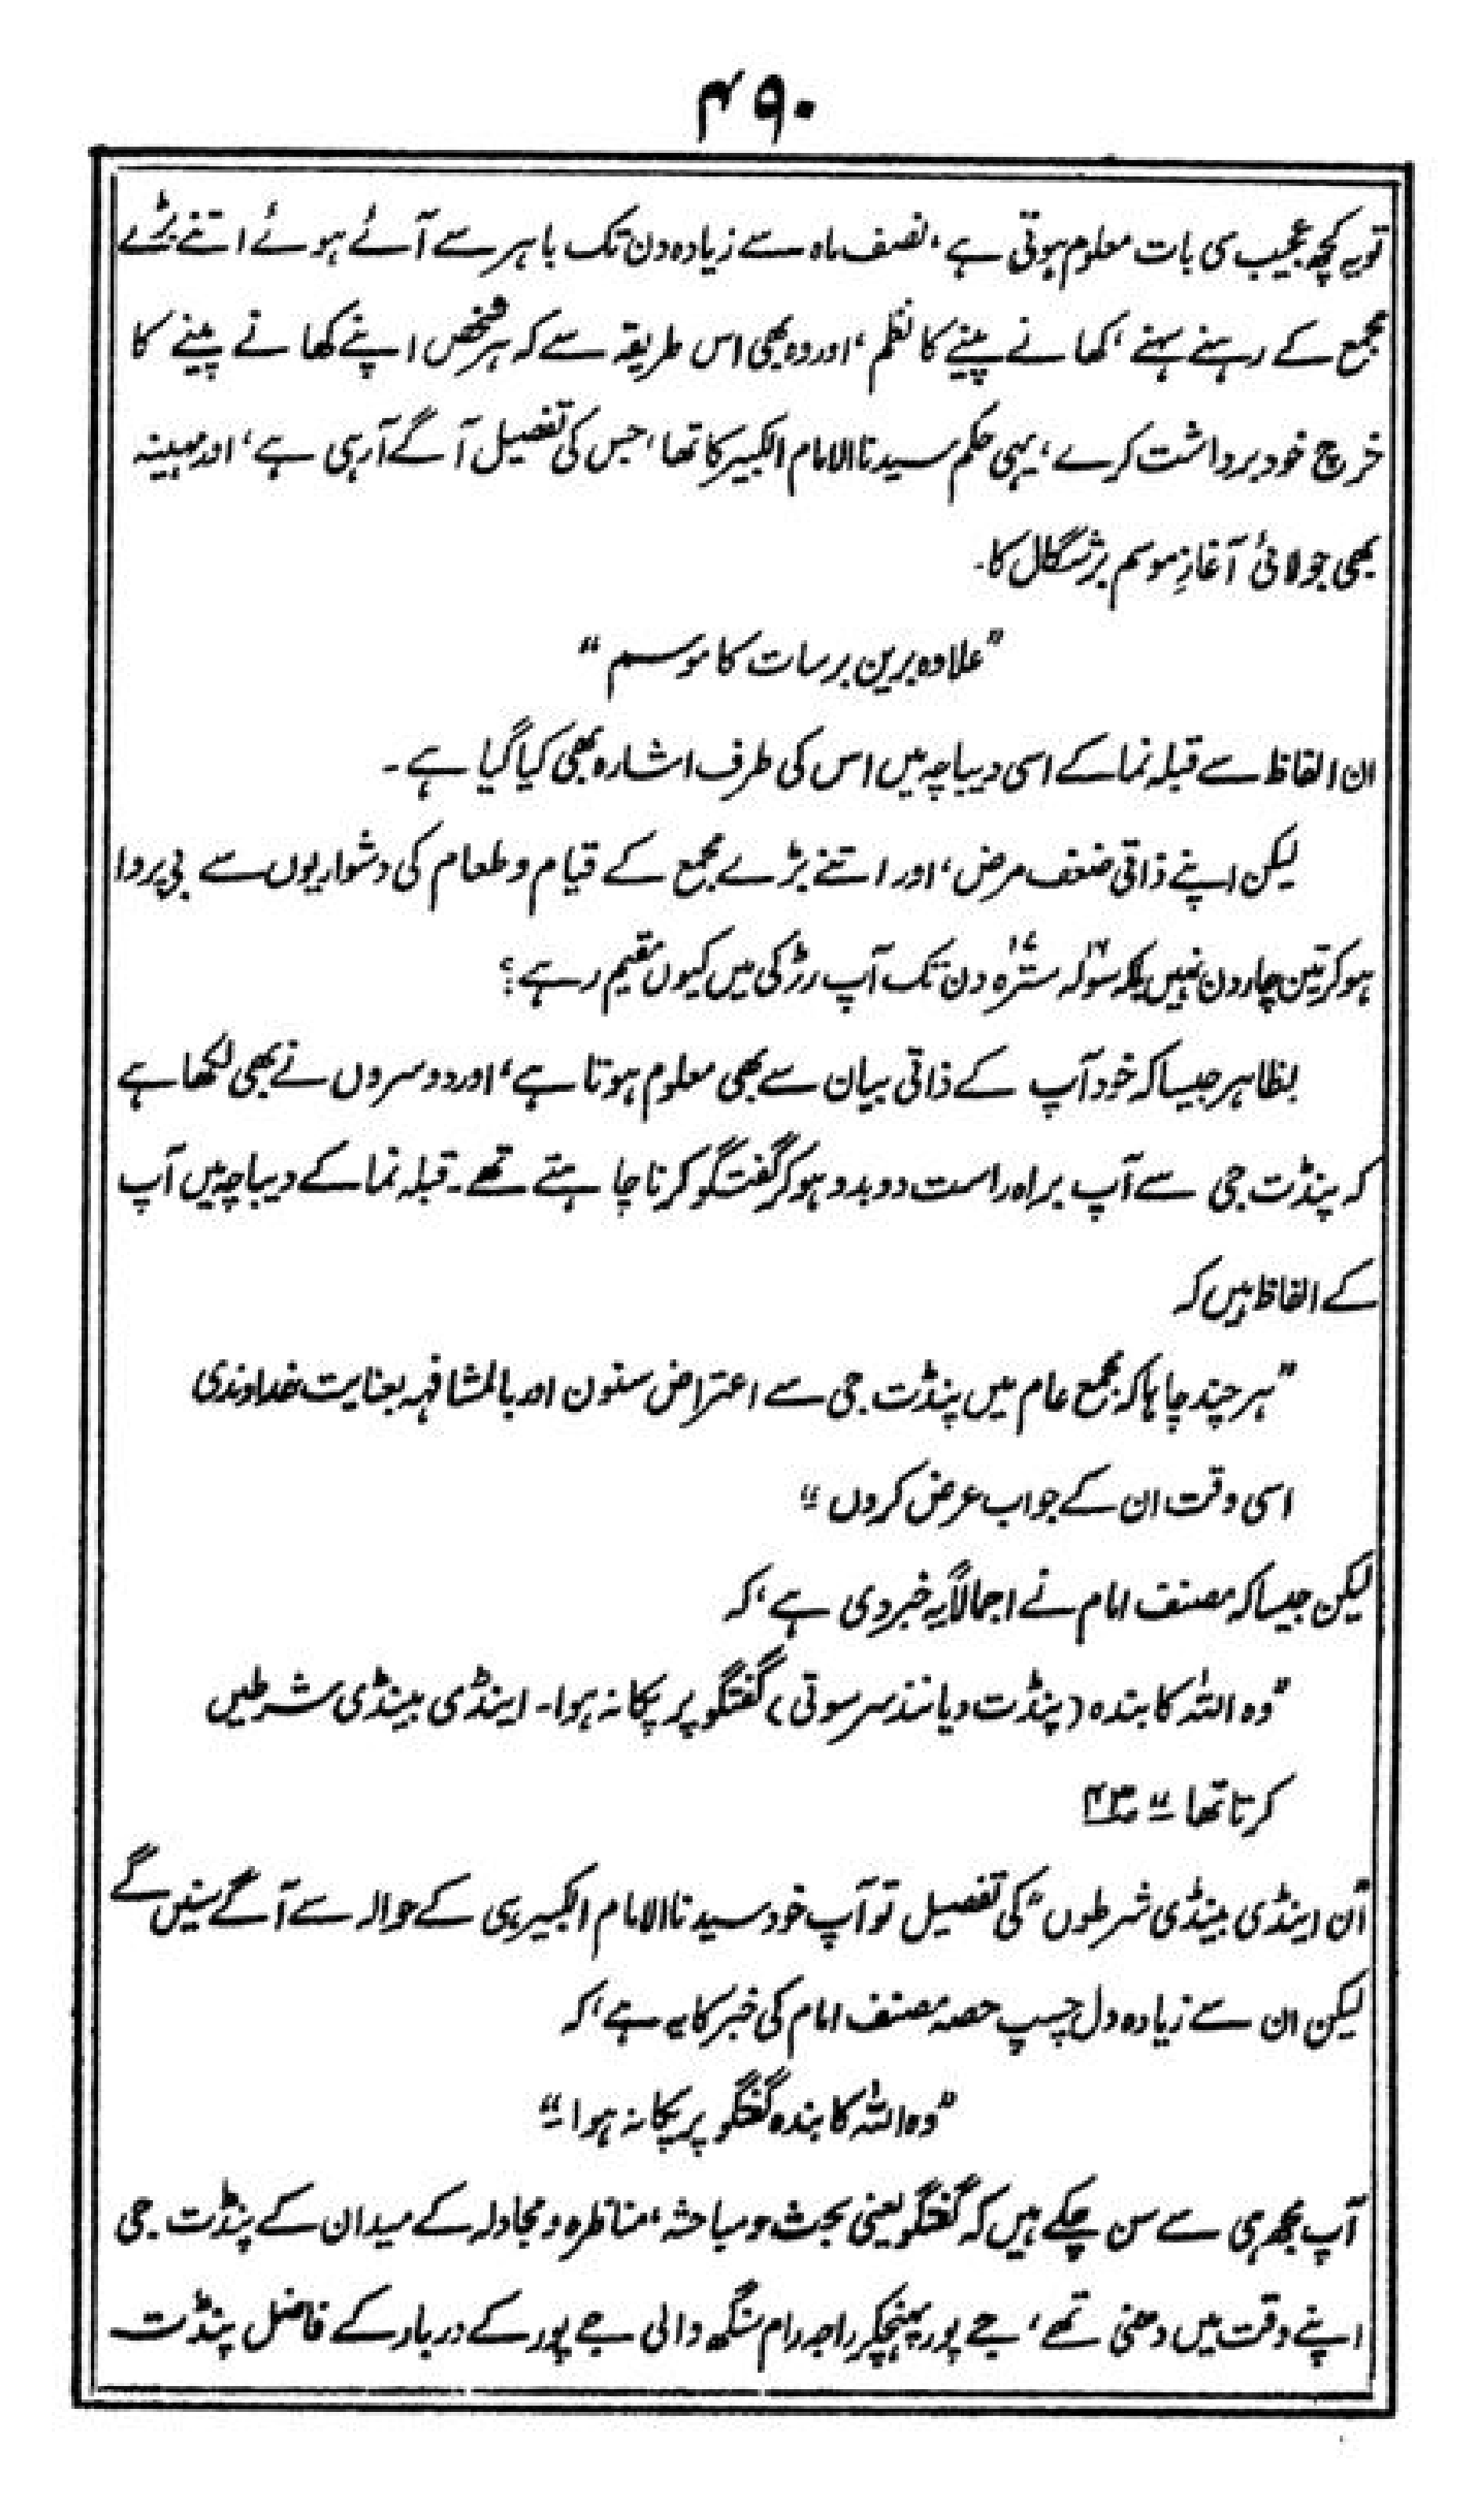 ۴۹۰
تو یہ کچھ عجیب سی بات معلوم ہوتی ہے، نصف ماہ سے زیادہ دن تک باہر سے آئے ہوئے اتنے بڑے
مجمع کے رہنے سہنے، کھانے پینے کا نظم، اور وہ بھی اس طریقہ سے کہ ہر شخص اپنے کھانے پینے کا
خرچ خود برداشت کرے، یہی حکم سیدنا الامام الکبیر کا تھا، جس کی تفصیل آگے آرہی ہے، اور مہینہ
بھی جولائی آغازِ موسم برشگال کا۔
”علاوہ برین برسات کا موسم“
ان الفاظ سے قبلہ نما کے اسی دیباچہ میں اس کی طرف اشارہ بھی کیا گیا ہے۔
لیکن اپنے ذاتی ضعف مرض، اور اتنے بڑے مجمع کے قیام و طعام کی دشواریوں سے بے پروا
ہو کر تین چار دن نہیں بلکہ سولہ۱۶ سترہ۱۷ دن تک آپ رڑکی میں کیوں مقیم رہے؟
بظاہر جیسا کہ خود آپ کے ذاتی بیان سے بھی معلوم ہوتا ہے، اور دوسروں نے بھی لکھا ہے
کہ پنڈت جی سے آپ براہ راست دوبدو ہو کر گفتگو کرنا چاہتے تھے۔ قبلہ نما کے دیباچہ میں آپ
کے الفاظ ہیں کہ
”ہر چند چاہا کہ مجمع عام میں پنڈت جی سے اعتراض سنون اور بالمشافہہ بعنایت خداوندی
اسی وقت ان کے جواب عرض کروں“
لیکن جیسا کہ مصنف امام نے اجمالاً یہ خبر دی ہے، کہ
”وہ اللہ کا بندہ (پنڈت دیانند سرسوتی) گفتگو پر پکا نہ ہوا۔ اینڈی بینڈی شرطیں
کرتا تھا“ ص۴۳
اُن اینڈی بینڈی شرطوں“ کی تفصیل تو آپ خود سیدنا الامام الکبیر ہی کے حوالہ سے آگے سنیں گے
لیکن ان سے زیادہ دل چسپ حصہ مصنف امام کی خبر کا یہ ہے، کہ
”وہ اللہ کا بندہ گفتگو پر پکا نہ ہوا“
آپ مجھ ہی سے سن چکے ہیں کہ گفتگو یعنی بحث و مباحثہ، مناظرہ و مجادلہ کے میدان کے پنڈت جی
اپنے وقت میں دھنی تھے، جے پور پہنچکر راجہ رام سنگھ والی جے پور کے دربار کے فاضل پنڈت